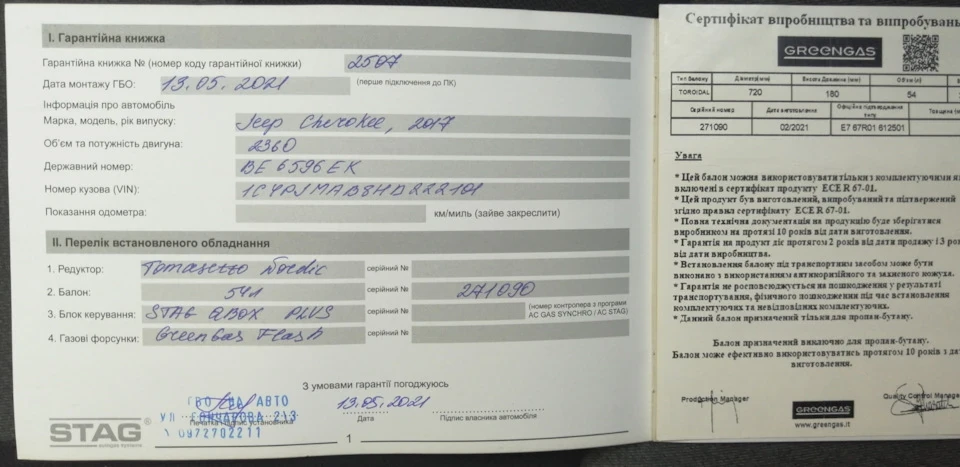 I. Гарантійна книжка
Гарантійна книжка № (номер коду гарантійної книжки) 2507
Дата монтажу ГБО: 13.05.2021 (перше підключення до ПК)
Інформація про автомобіль
Марка, модель, рік випуску: Jeep Cherokee, 2017
Об'єм та потужність двигуна: 2360
Державний номер: BE 6596 EK
Номер кузова (VIN): 1C4PJMAB8HD222101
Показання одометра: км/миль (зайве закреслити)
II. Перелік встановленого обладнання
1. Редуктор: Tomasetto Nordic серійний №
2. Балон: 54л серійний № 271090
3. Блок керування: STAG QBOX PLUS серійний № (номер контролера з програми AC GAS SYNCHRO / AC STAG)
4. Газові форсунки: GreenGas Flash серійний №
З умовами гарантії погоджуюсь
ГБО НА АВТО
УЛ ГОНЧАРОВА 213
0972702211
Печатка і підпис установника
13.05.2021
Дата
Підпис власника автомобіля
STAG®
1
Сертифікат виробництва та випробувань
GREENGAS
Тип балону Діаметр(мм) Висота Довжина (мм) Об'єм (л)
TOROIDAL 720 180 54
Серійний номер Дата виготовлення Офіційна підтвердження типу Товщина (мм)
271090 02/2021 E7 67R01 612501
Увага
* Цей балон можна використовувати тільки з комплектуючими як
включені в сертифікат продукту ECE R 67-01.
* Цей продукт був виготовлений, випробуваний та підтверджений
згідно правил сертифікату ECE R 67-01.
* Повна технічна документація на продукцію буде зберігатися
виробником на протязі 10 років від дати виготовлення.
* Гарантія на продукт діє протягом 2 років від дати продажу і 3 рок
від дати виробництва.
* Встановлення балону під транспортним засобом може бути
виконано з використанням антикорозійного та захисного кожуха.
* Гарантія не розповсюджується на пошкодження у результаті
транспортування, фізичного пошкодження під час встановлення
комплектуючих та невідповідних комплектуючих.
* Данний балон призначений тільки для пропан-бутану.
Балон призначений виключно для пропан-бутану.
Балон може ефективно використовуватись протягом 10 років з дат
виготовлення.
Production Manager
Quality Control Manager
GREENGAS
www.greengas.it